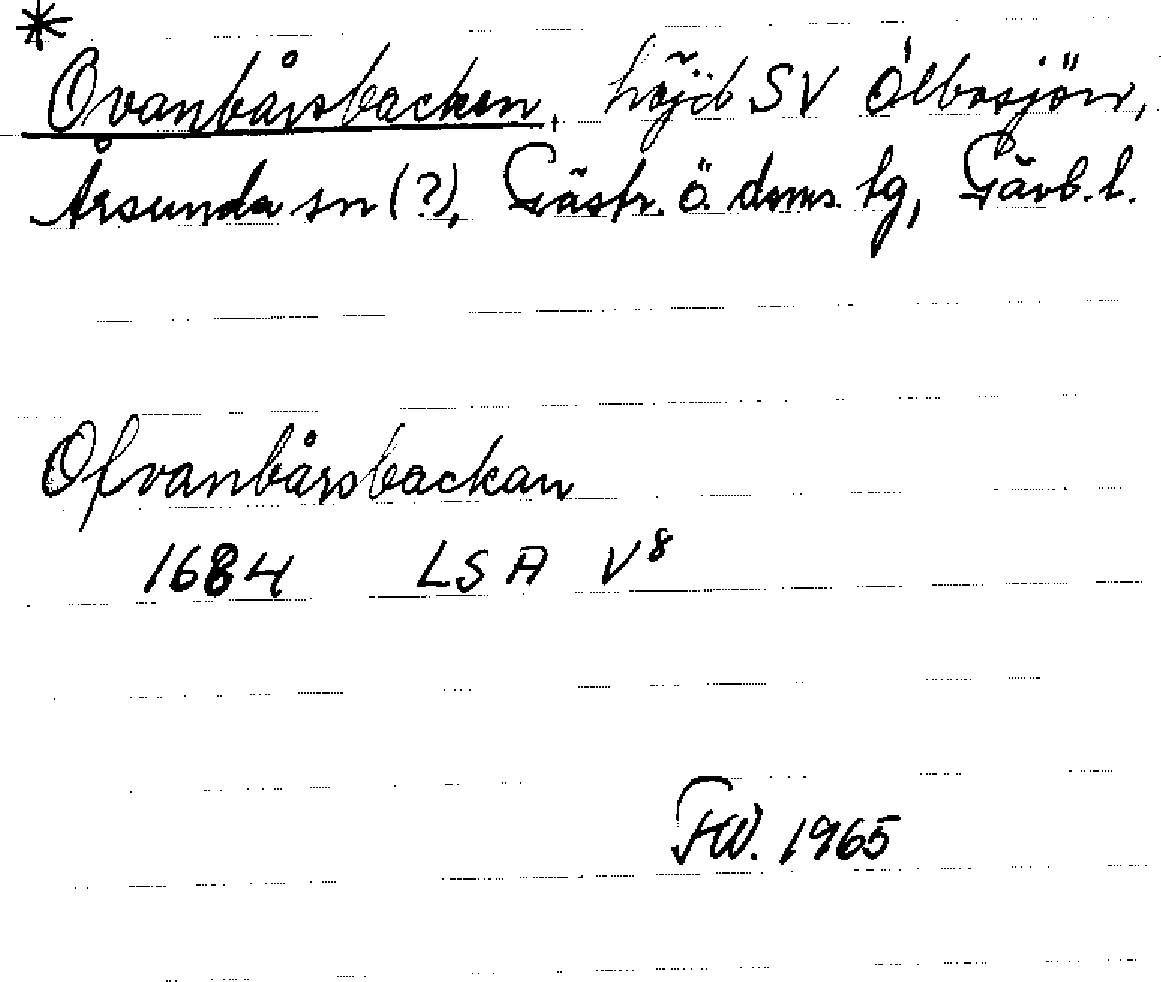 *
Ovanbårsbacken, höjd SV Ólbosjön,
Årsunda sn (?), Gästr. ö. doms. tg, Gävb. l.
Ofvanbårsbackan
1684 LSA V8
FW. 1965